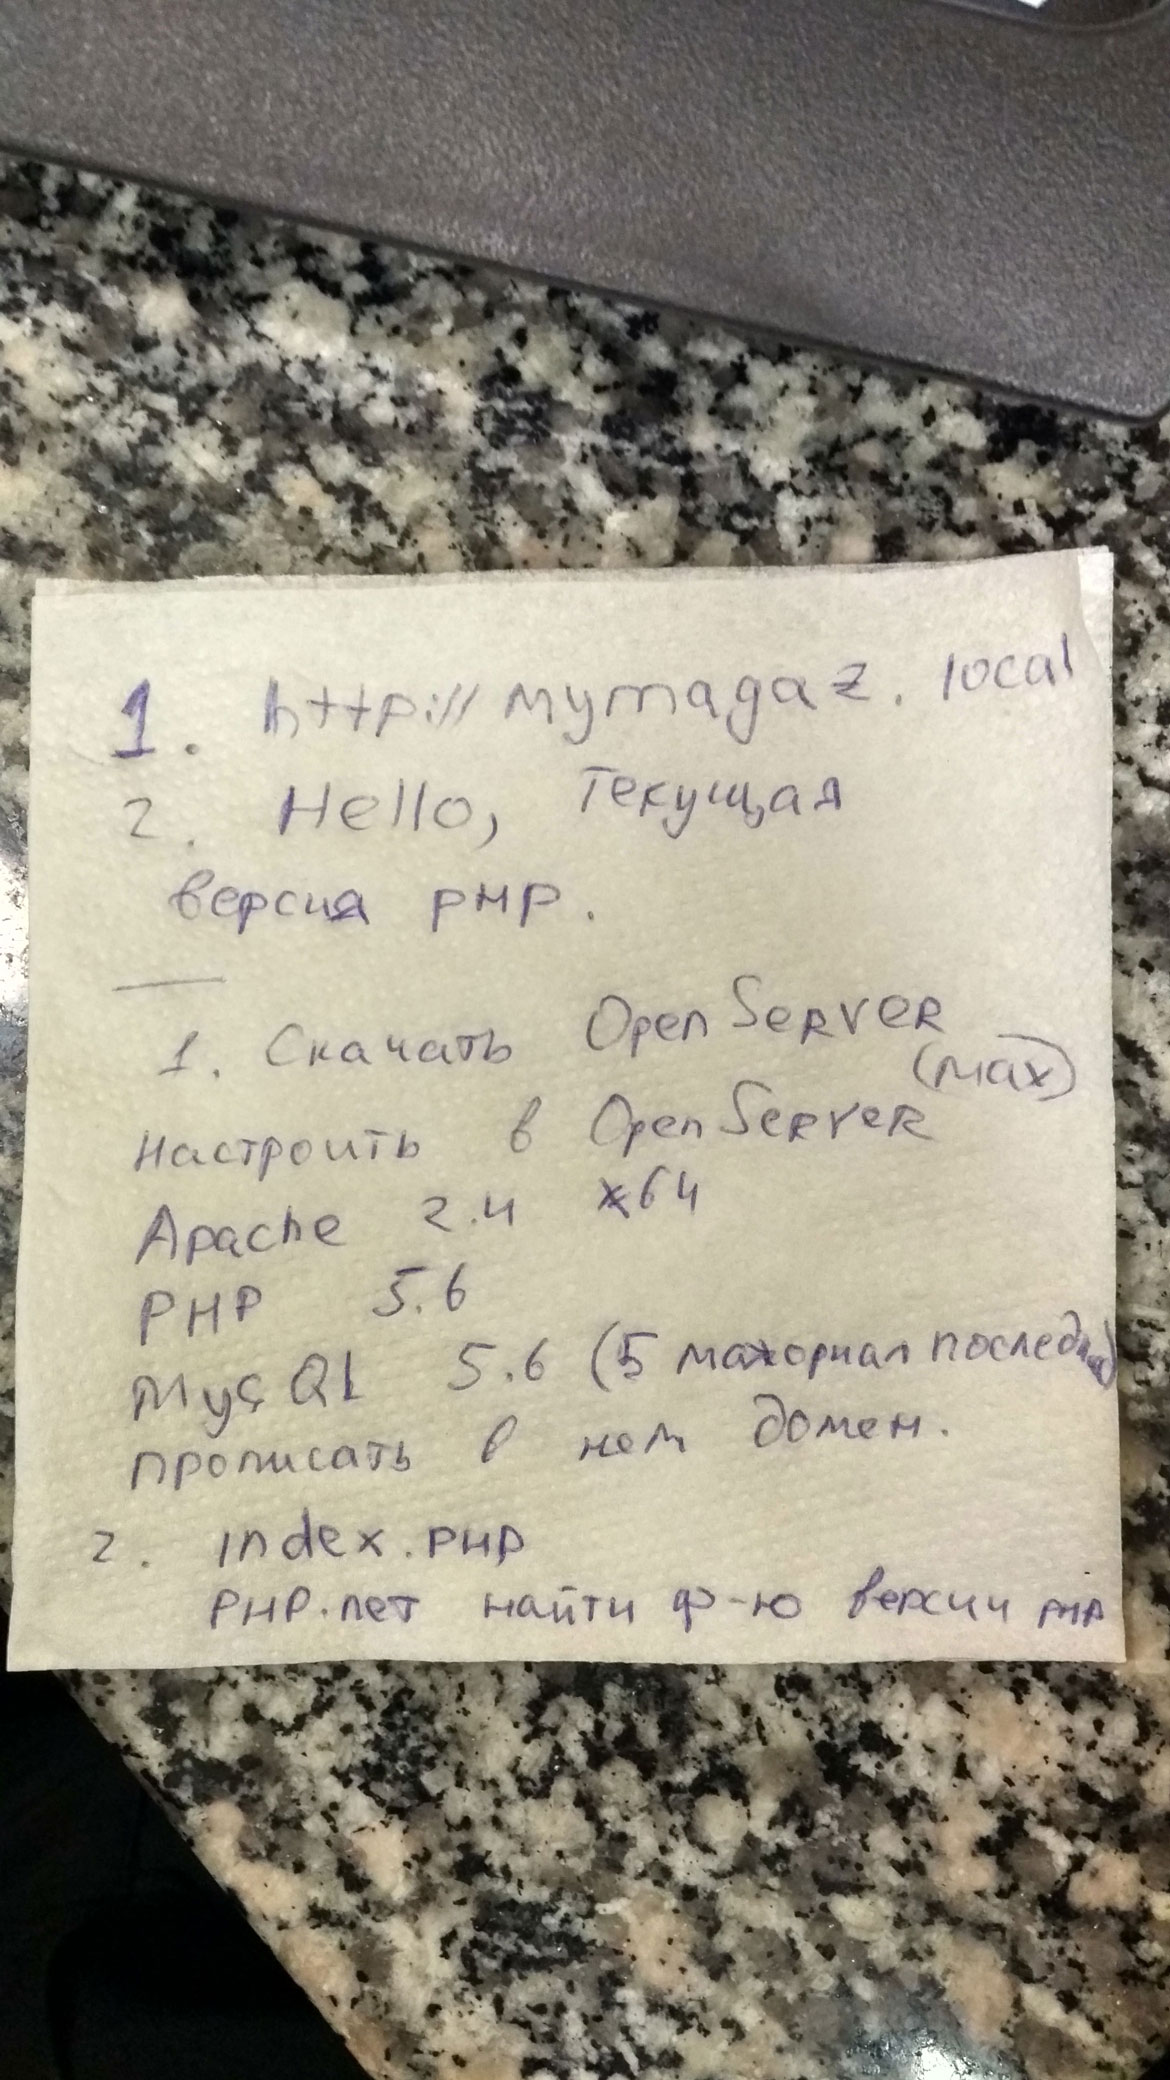 1. http:// mymagaz. local
2. Hello, Текущая
версия PHP.
1. Скачать Open Server
(max)
Настроить в Open Server
Apache 2.4 x64
PHP 5.6
MySQL 5.6 (5 мажорная последняя)
прописать в нем домен.
2. index.PHP
PHP.net найти ф-ю версии PHP